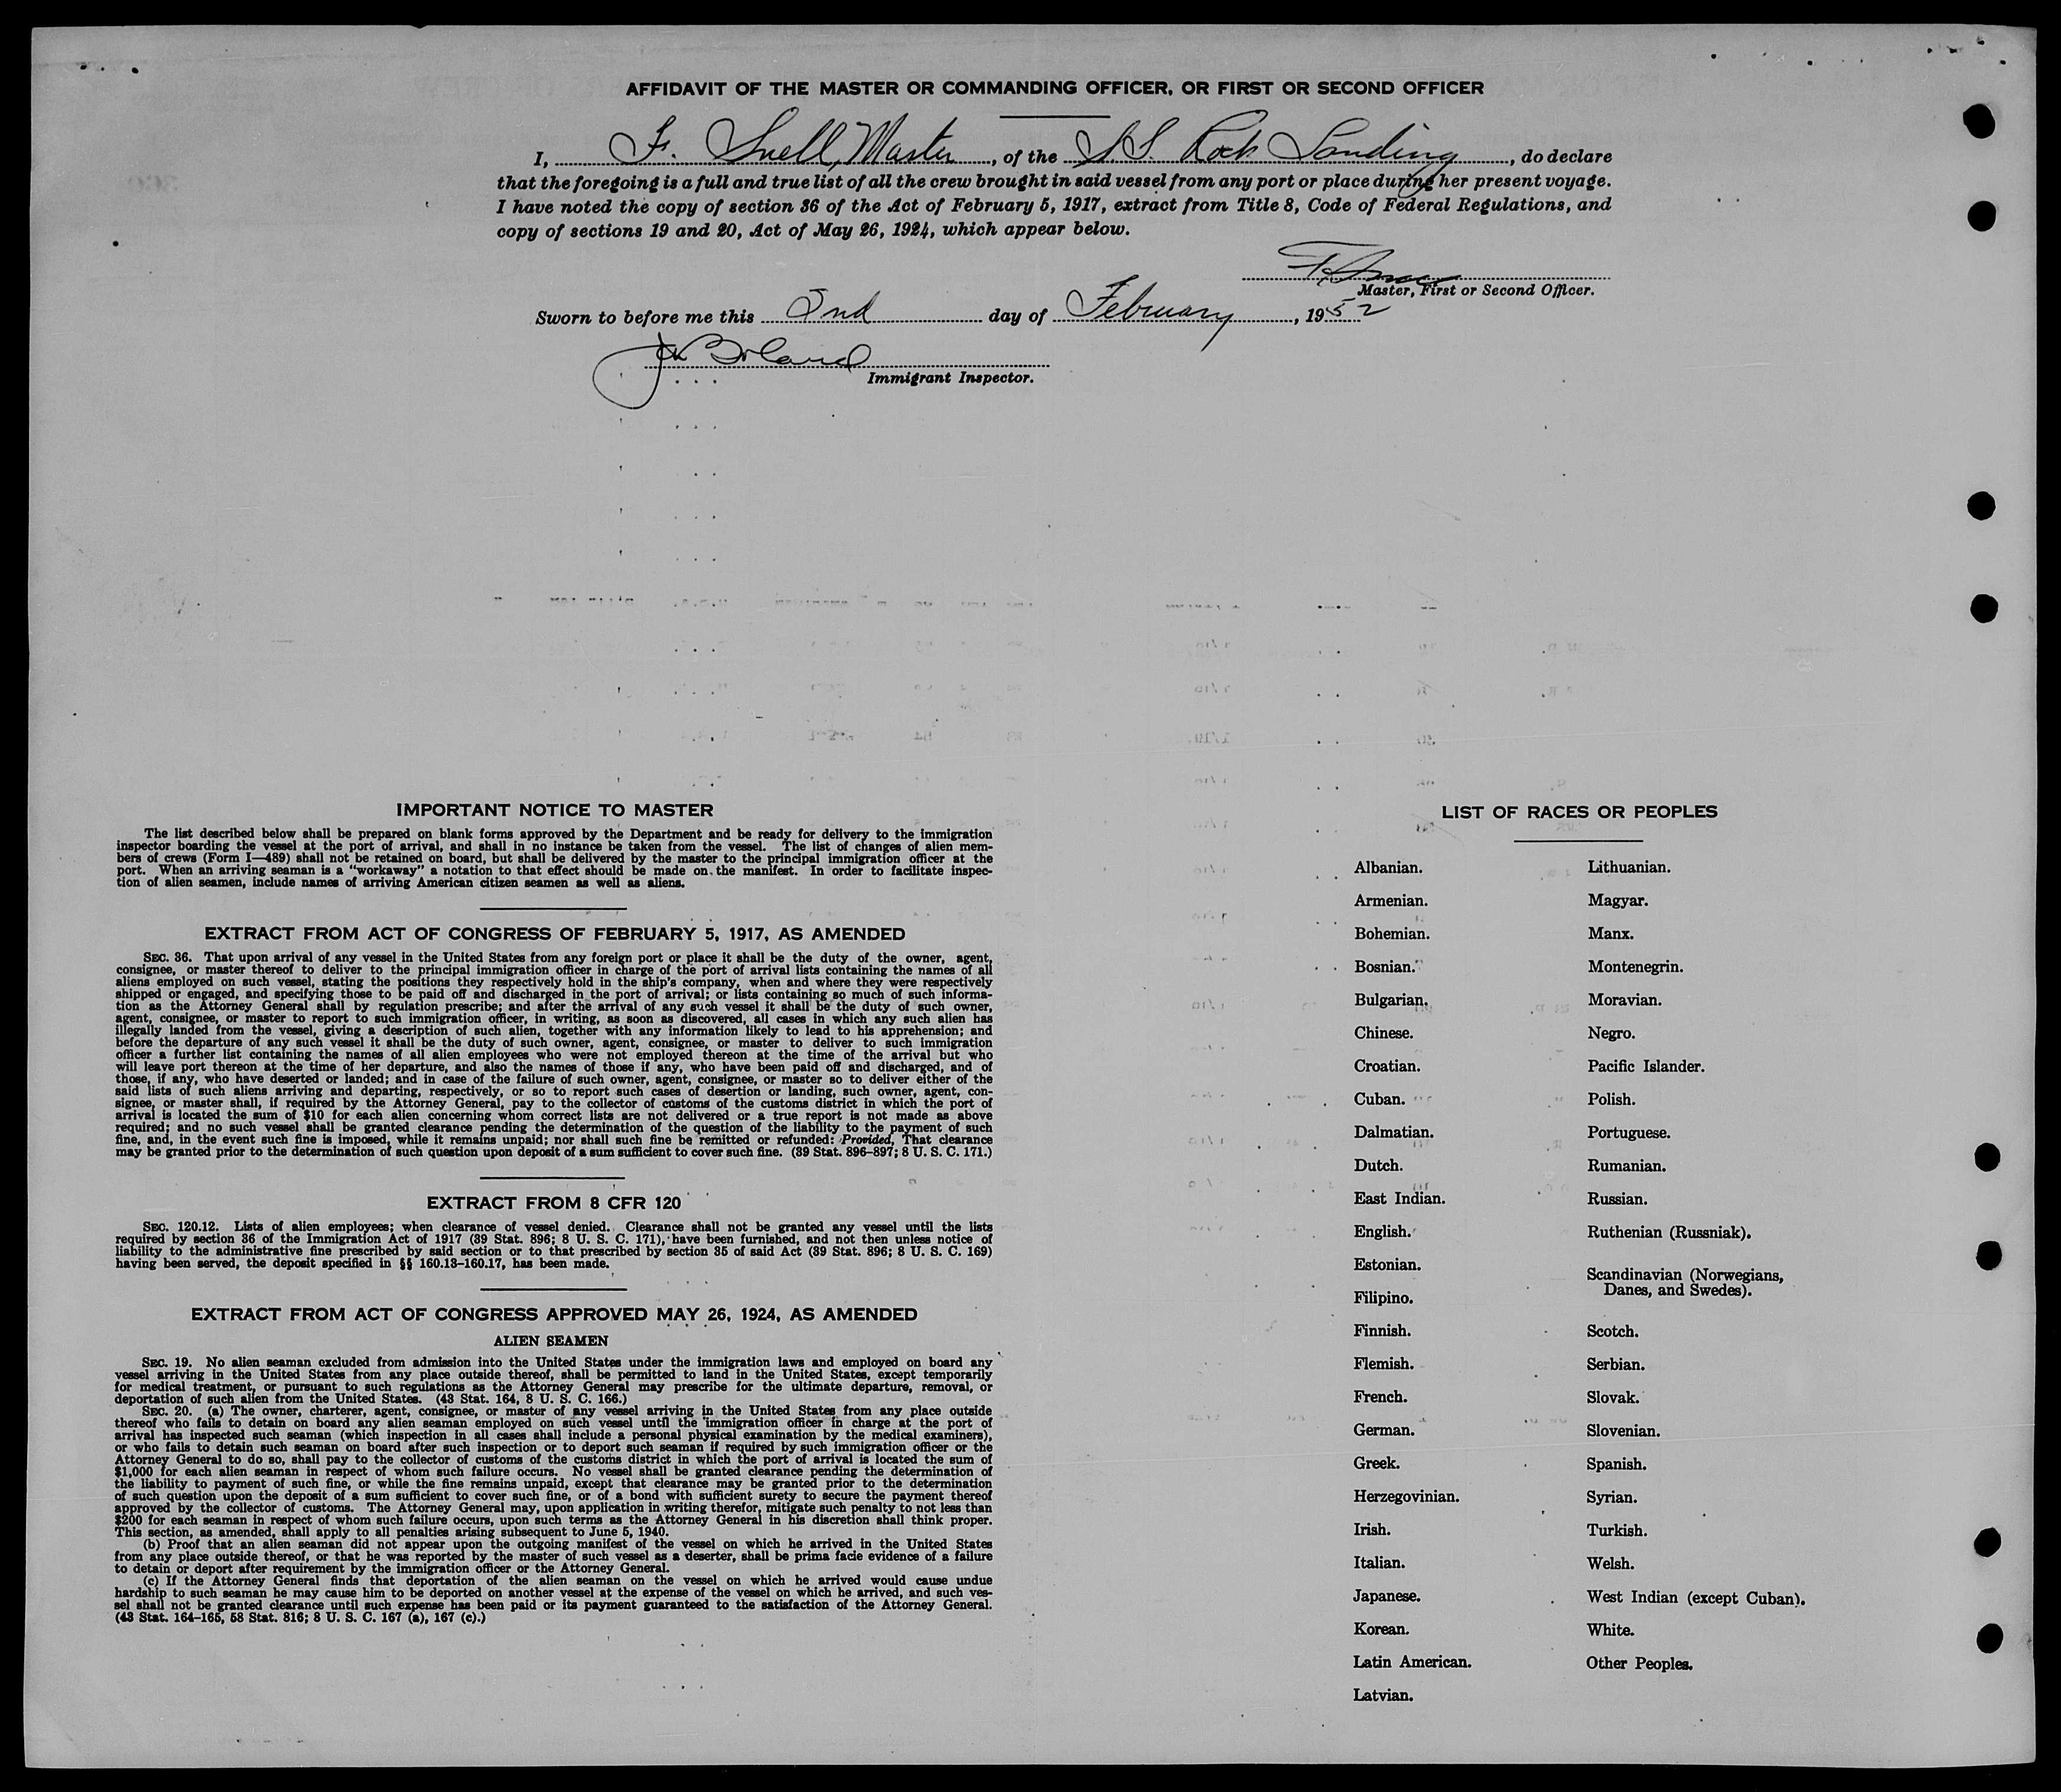 AFFIDAVIT OF THE MASTER OR COMMANDING OFFICER, OR FIRST OR SECOND OFFICER
I, F. Snell, Master, of the S.S. Rock Landing, do declare
that the foregoing is a full and true list of all the crew brought in said vessel from any port or place during her present voyage.
I have noted the copy of section 36 of the Act of February 5, 1917, extract from Title 8, Code of Federal Regulations, and
copy of sections 19 and 20, Act of May 26, 1924, which appear below.
Master, First or Second Officer.
Sworn to before me this 2nd day of February, 1952
Immigrant Inspector.
IMPORTANT NOTICE TO MASTER
The list described below shall be prepared on blank forms approved by the Department and be ready for delivery to the immigration
inspector boarding the vessel at the port of arrival, and shall in no instance be taken from the vessel. The list of changes of alien mem-
bers of crews (Form I—489) shall not be retained on board, but shall be delivered by the master to the principal immigration officer at the
port. When an arriving seaman is a "workaway" a notation to that effect should be made on the manifest. In order to facilitate inspec-
tion of alien seamen, include names of arriving American citizen seamen as well as aliens.
EXTRACT FROM ACT OF CONGRESS OF FEBRUARY 5, 1917, AS AMENDED
SEC. 36. That upon arrival of any vessel in the United States from any foreign port or place it shall be the duty of the owner, agent,
consignee, or master thereof to deliver to the principal immigration officer in charge of the port of arrival lists containing the names of all
aliens employed on such vessel, stating the positions they respectively hold in the ship's company, when and where they were respectively
shipped or engaged, and specifying those to be paid off and discharged in the port of arrival; or lists containing so much of such informa-
tion as the Attorney General shall by regulation prescribe; and after the arrival of any such vessel it shall be the duty of such owner,
agent, consignee, or master to report to such immigration officer, in writing, as soon as discovered, all cases in which any such alien has
illegally landed from the vessel, giving a description of such alien, together with any information likely to lead to his apprehension; and
before the departure of any such vessel it shall be the duty of such owner, agent, consignee, or master to deliver to such immigration
officer a further list containing the names of all alien employees who were not employed thereon at the time of the arrival but who
will leave port thereon at the time of her departure, and also the names of those if any, who have been paid off and discharged, and of
those, if any, who have deserted or landed; and in case of the failure of such owner, agent, consignee, or master so to deliver either of the
said lists of such aliens arriving and departing, respectively, or so to report such cases of desertion or landing, such owner, agent, con-
signee, or master shall, if required by the Attorney General, pay to the collector of customs of the customs district in which the port of
arrival is located the sum of $10 for each alien concerning whom correct lists are not delivered or a true report is not made as above
required; and no such vessel shall be granted clearance pending the determination of the question of the liability to the payment of such
fine, and, in the event such fine is imposed, while it remains unpaid; nor shall such fine be remitted or refunded: Provided, That clearance
may be granted prior to the determination of such question upon deposit of a sum sufficient to cover such fine. (39 Stat. 896–897; 8 U. S. C. 171.)
EXTRACT FROM 8 CFR 120
SEC. 120.12. Lists of alien employees; when clearance of vessel denied. Clearance shall not be granted any vessel until the lists
required by section 36 of the Immigration Act of 1917 (39 Stat. 896; 8 U. S. C. 171), have been furnished, and not then unless notice of
liability to the administrative fine prescribed by said section or to that prescribed by section 35 of said Act (39 Stat. 896; 8 U. S. C. 169)
having been served, the deposit specified in §§ 160.13–160.17, has been made.
EXTRACT FROM ACT OF CONGRESS APPROVED MAY 26, 1924, AS AMENDED
ALIEN SEAMEN
SEC. 19. No alien seaman excluded from admission into the United States under the immigration laws and employed on board any
vessel arriving in the United States from any place outside thereof, shall be permitted to land in the United States, except temporarily
for medical treatment, or pursuant to such regulations as the Attorney General may prescribe for the ultimate departure, removal, or
deportation of such alien from the United States. (43 Stat. 164, 8 U. S. C. 166.)
SEC. 20. (a) The owner, charterer, agent, consignee, or master of any vessel arriving in the United States from any place outside
thereof who fails to detain on board any alien seaman employed on such vessel until the immigration officer in charge at the port of
arrival has inspected such seaman (which inspection in all cases shall include a personal physical examination by the medical examiners),
or who fails to detain such seaman on board after such inspection or to deport such seaman if required by such immigration officer or the
Attorney General to do so, shall pay to the collector of customs of the customs district in which the port of arrival is located the sum of
$1,000 for each alien seaman in respect of whom such failure occurs. No vessel shall be granted clearance pending the determination of
the liability to payment of such fine, or while the fine remains unpaid, except that clearance may be granted prior to the determination
of such question upon the deposit of a sum sufficient to cover such fine, or of a bond with sufficient surety to secure the payment thereof
approved by the collector of customs. The Attorney General may, upon application in writing therefor, mitigate such penalty to not less than
$200 for each seaman in respect of whom such failure occurs, upon such terms as the Attorney General in his discretion shall think proper.
This section, as amended, shall apply to all penalties arising subsequent to June 5, 1940.
(b) Proof that an alien seaman did not appear upon the outgoing manifest of the vessel on which he arrived in the United States
from any place outside thereof, or that he was reported by the master of such vessel as a deserter, shall be prima facie evidence of a failure
to detain or deport after requirement by the immigration officer or the Attorney General.
(c) If the Attorney General finds that deportation of the alien seaman on the vessel on which he arrived would cause undue
hardship to such seaman he may cause him to be deported on another vessel at the expense of the vessel on which he arrived, and such ves-
sel shall not be granted clearance until such expense has been paid or its payment guaranteed to the satisfaction of the Attorney General.
(43 Stat. 164–165, 58 Stat. 816; 8 U. S. C. 167 (a), 167 (c).)
LIST OF RACES OR PEOPLES
Albanian.
Armenian.
Bohemian.
Bosnian.
Bulgarian.
Chinese.
Croatian.
Cuban.
Dalmatian.
Dutch.
East Indian.
English.
Estonian.
Filipino.
Finnish.
Flemish.
French.
German.
Greek.
Herzegovinian.
Irish.
Italian.
Japanese.
Korean.
Latin American.
Latvian.
Lithuanian.
Magyar.
Manx.
Montenegrin.
Moravian.
Negro.
Pacific Islander.
Polish.
Portuguese.
Rumanian.
Russian.
Ruthenian (Russniak).
Scandinavian (Norwegians,
Danes, and Swedes).
Scotch.
Serbian.
Slovak.
Slovenian.
Spanish.
Syrian.
Turkish.
Welsh.
West Indian (except Cuban).
White.
Other Peoples.